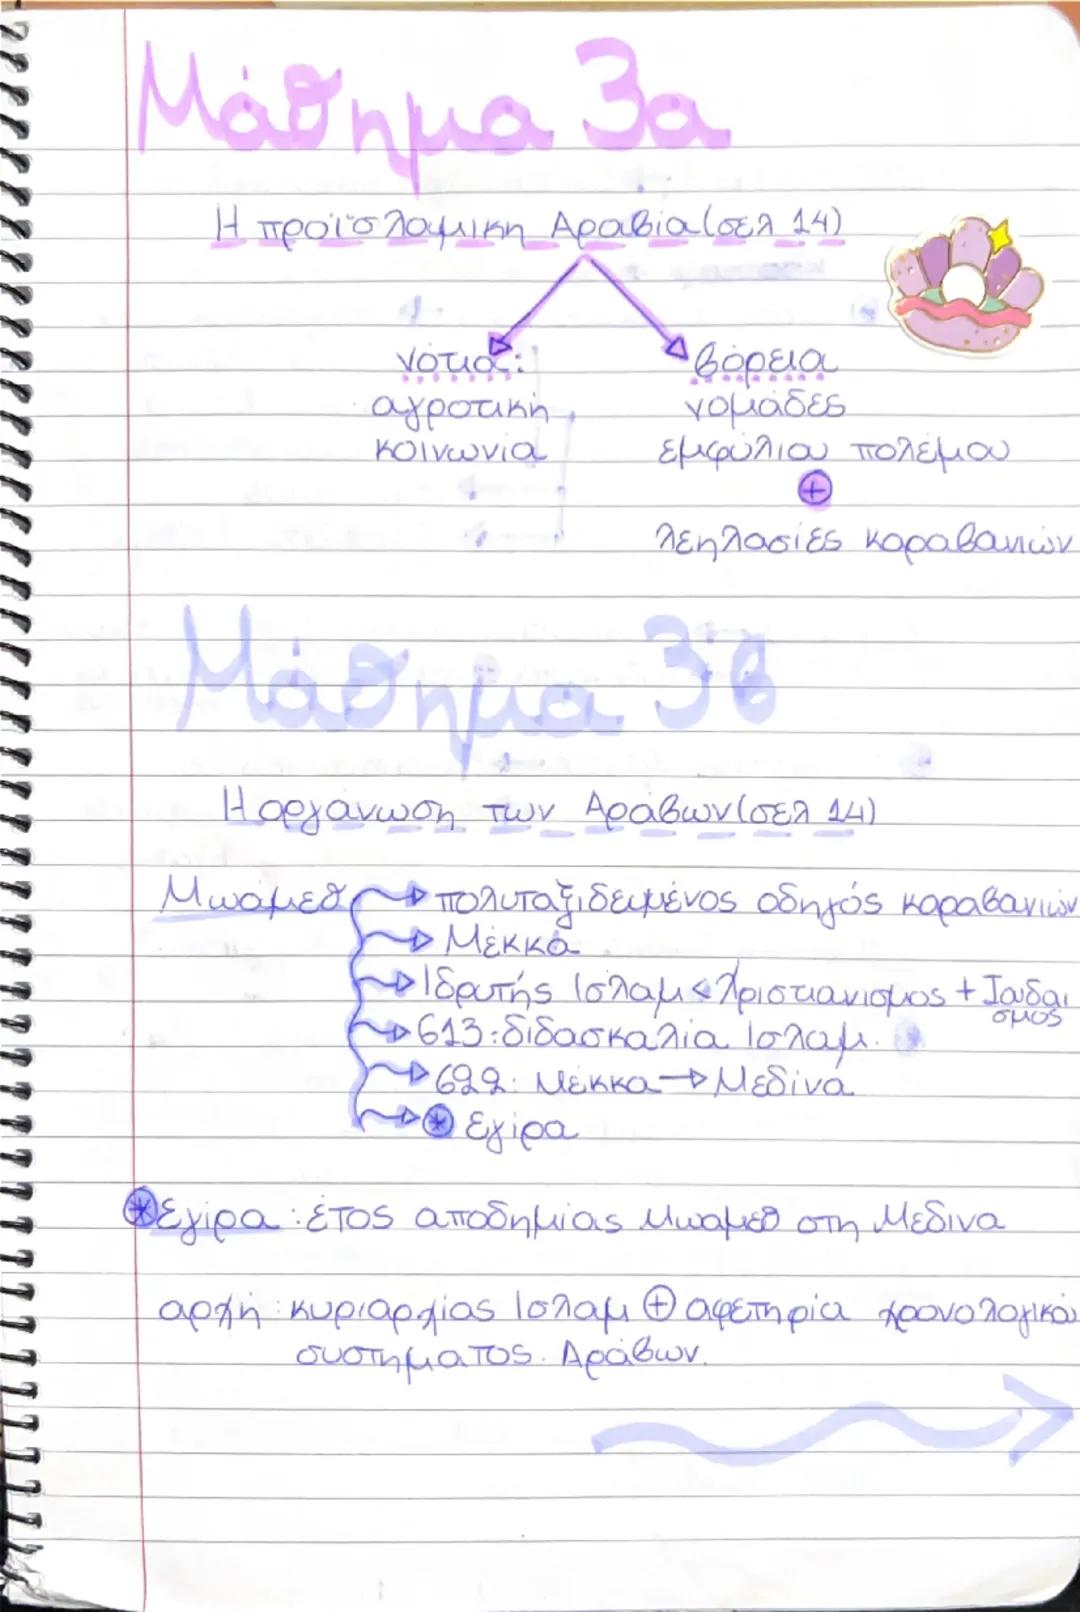 Μάθημα 3α
Η προϊσλαμικη Αραβία (σελ 14)
νότια:
αγροτική
κοινωνία
βόρεια
νομάδες
εμφύλιου πολέμου
+
λεηλασίες καραβανιών
Μάθημα 3β
Η οργάνωση των Αράβων (σελ 14)
Μωάμεθ
πολυταξιδεμένος οδηγός καραβανιών
Μέκκα
Ιδρυτής Ισλαμ < Χριστιανισμος + Ιουδαι
σμος
613: διδασκαλία Ισλαμ.
622: Μέκκα → Μεδίνα
* Εγίρα
* Εγίρα: έτος αποδημίας Μωαμεθ στη Μεδίνα
αρχή κυριαρχίας Ισλαμ + αφετηρία χρονολογικού
συστηματος Αράβων.